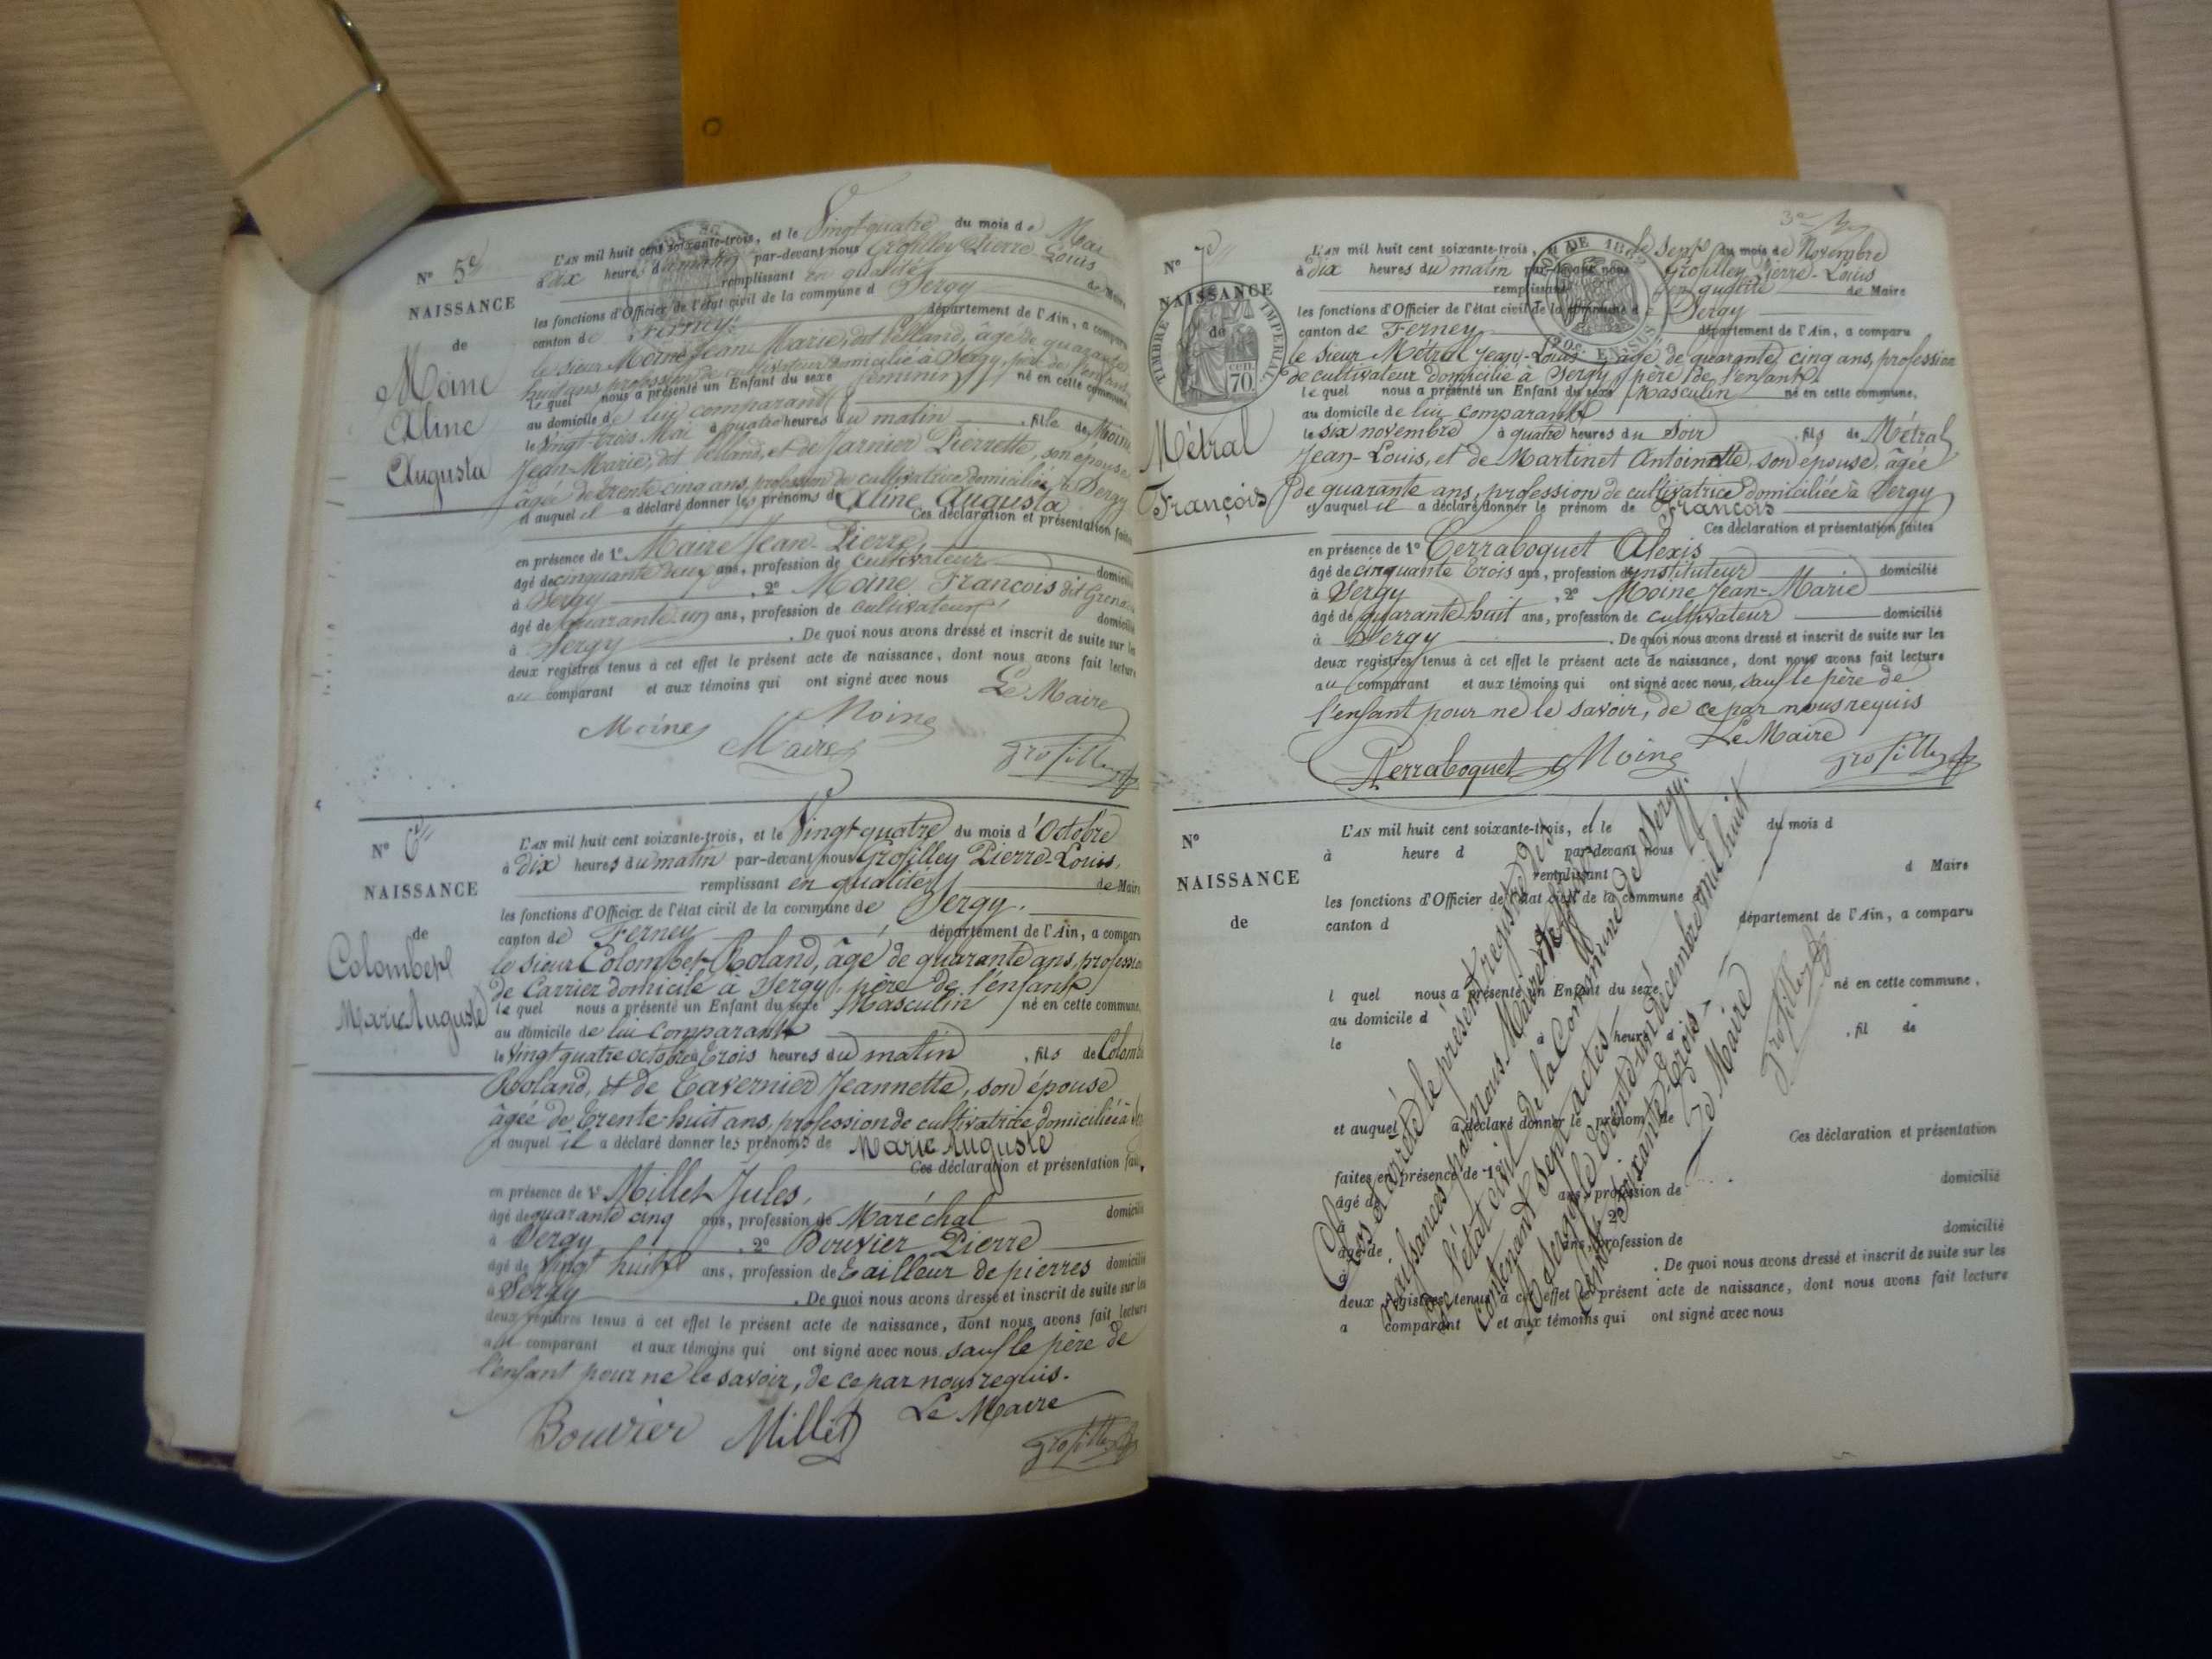 N° 5e
NAISSANCE
de
Moine
Aline
Augusta
L'AN mil huit cent soixante-trois, et le Vingt quatre du mois de Mai
à dix heures du matin par-devant nous Grosfilley Pierre Louis
remplissant en qualité de Maire
les fonctions d'Officier de l'état civil de la commune d Sergy
canton de Ferney département de l'Ain, a comparu
le sieur Moine Jean Marie, dit Pelland, âgé de quarante
huit ans, profession de cultivateur domicilié à Sergy, père de l'enfant
le quel nous a présenté un Enfant du sexe féminin né en cette commune,
au domicile de lui comparant
le vingt trois Mai à quatre heures du matin , fille de Moine
Jean-Marie, dit Pelland, et de Jarnier Pierrette, son épouse
âgée de trente cinq ans, profession de cultivatrice domiciliée à Sergy
et auquel il a déclaré donner les prénoms de Aline Augusta
Ces déclaration et présentation faites
en présence de 1° Maire Jean-Pierre,
âgé de cinquante deux ans, profession de cultivateur domicilié
à Sergy , 2° Moine François dit
âgé de quarante un ans, profession de cultivateur domicilié
à Sergy . De quoi nous avons dressé et inscrit de suite sur les
deux registres tenus à cet effet le présent acte de naissance, dont nous avons fait lecture
au comparant et aux témoins qui ont signé avec nous Le Maire
Moine Moine
Maire Grosfilley
N° 6
NAISSANCE
de
Colombet
Marie Auguste
L'AN mil huit cent soixante-trois, et le Vingt quatre du mois d'Octobre
à dix heures du matin par-devant nous Grosfilley Pierre-Louis,
remplissant en qualité de Maire
les fonctions d'Officier de l'état civil de la commune de Sergy.
canton de Ferney département de l'Ain, a comparu
le sieur Colombet Roland, âgé de quarante ans, profession
de Carrier domicilié à Sergy, père de l'enfant,
le quel nous a présenté un Enfant du sexe Masculin né en cette commune,
au domicile de lui Comparant
le Vingt quatre octobre à trois heures du matin , fils de Colombet
Roland, et de Tavernier Jeannette, son épouse
âgée de trente-huit ans, profession de cultivatrice domiciliée à
et auquel il a déclaré donner les prénoms de Marie Auguste
Ces déclaration et présentation faites
en présence de 1° Millet Jules,
âgé de quarante cinq ans, profession de Maréchal domicilié
à Sergy , 2° Bouvier Pierre
âgé de Vingt huit ans, profession de tailleur de pierres domicilié
à Sergy . De quoi nous avons dressé et inscrit de suite sur les
deux registres tenus à cet effet le présent acte de naissance, dont nous avons fait lecture
au comparant et aux témoins qui ont signé avec nous, sauf le père de
l'enfant pour ne le savoir, de ce par nous requis.
Bouvier Millet Le Maire
Grosfilley
N° 7
NAISSANCE
de
TIMBRE IMPERIAL
70 cen
Métral
François
L'AN mil huit cent soixante-trois, et le Sept du mois de Novembre
à dix heures du matin par-devant nous Grosfilley Pierre-Louis
remplissant en qualité de Maire
les fonctions d'Officier de l'état civil de la commune d Sergy
canton de Ferney département de l'Ain, a comparu
le sieur Métral Jean-Louis, âgé de quarante cinq ans, profession
de cultivateur domicilié à Sergy, père de l'enfant,
le quel nous a présenté un Enfant du sexe Masculin né en cette commune,
au domicile de lui comparant
le six novembre à quatre heures du soir , fils de Métral
Jean-Louis, et de Martinet Antoinette, son épouse, âgée
de quarante ans, profession de cultivatrice domiciliée à Sergy
et auquel il a déclaré donner le prénom de François
Ces déclaration et présentation faites
en présence de 1° Terraboquet Alexis
âgé de cinquante trois ans, profession d'instituteur domicilié
à Sergy , 2° Moine Jean-Marie
âgé de quarante huit ans, profession de cultivateur domicilié
à Sergy . De quoi nous avons dressé et inscrit de suite sur les
deux registres tenus à cet effet le présent acte de naissance, dont nous avons fait lecture
au comparant et aux témoins qui ont signé avec nous, sauf le père de
l'enfant pour ne le savoir, de ce par nous requis
Le Maire
Terraboquet Moine Grosfilley
N°
NAISSANCE
de
L'AN mil huit cent soixante-trois, et le du mois d
à heure d par-devant nous
remplissant d Maire
les fonctions d'Officier de l'état civil de la commune d
canton d département de l'Ain, a comparu
l quel nous a présenté un Enfant du sexe né en cette commune,
au domicile d
le à heure d , fil de
et auquel a déclaré donner le prénom de
Ces déclaration et présentation
faites en présence de 1°
âgé de ans, profession de domicilié
à 2°
âgé de ans, profession de domicilié
à . De quoi nous avons dressé et inscrit de suite sur les
deux registres tenus à cet effet le présent acte de naissance, dont nous avons fait lecture
a comparant et aux témoins qui ont signé avec nous
Clos et arrêté le présent registre des
naissances par nous Maire et officier
de l'état civil de la Commune de Sergy.
Contenant sept actes
à Sergy le trente un décembre mil huit
cent soixante-trois
Le Maire
Grosfilley